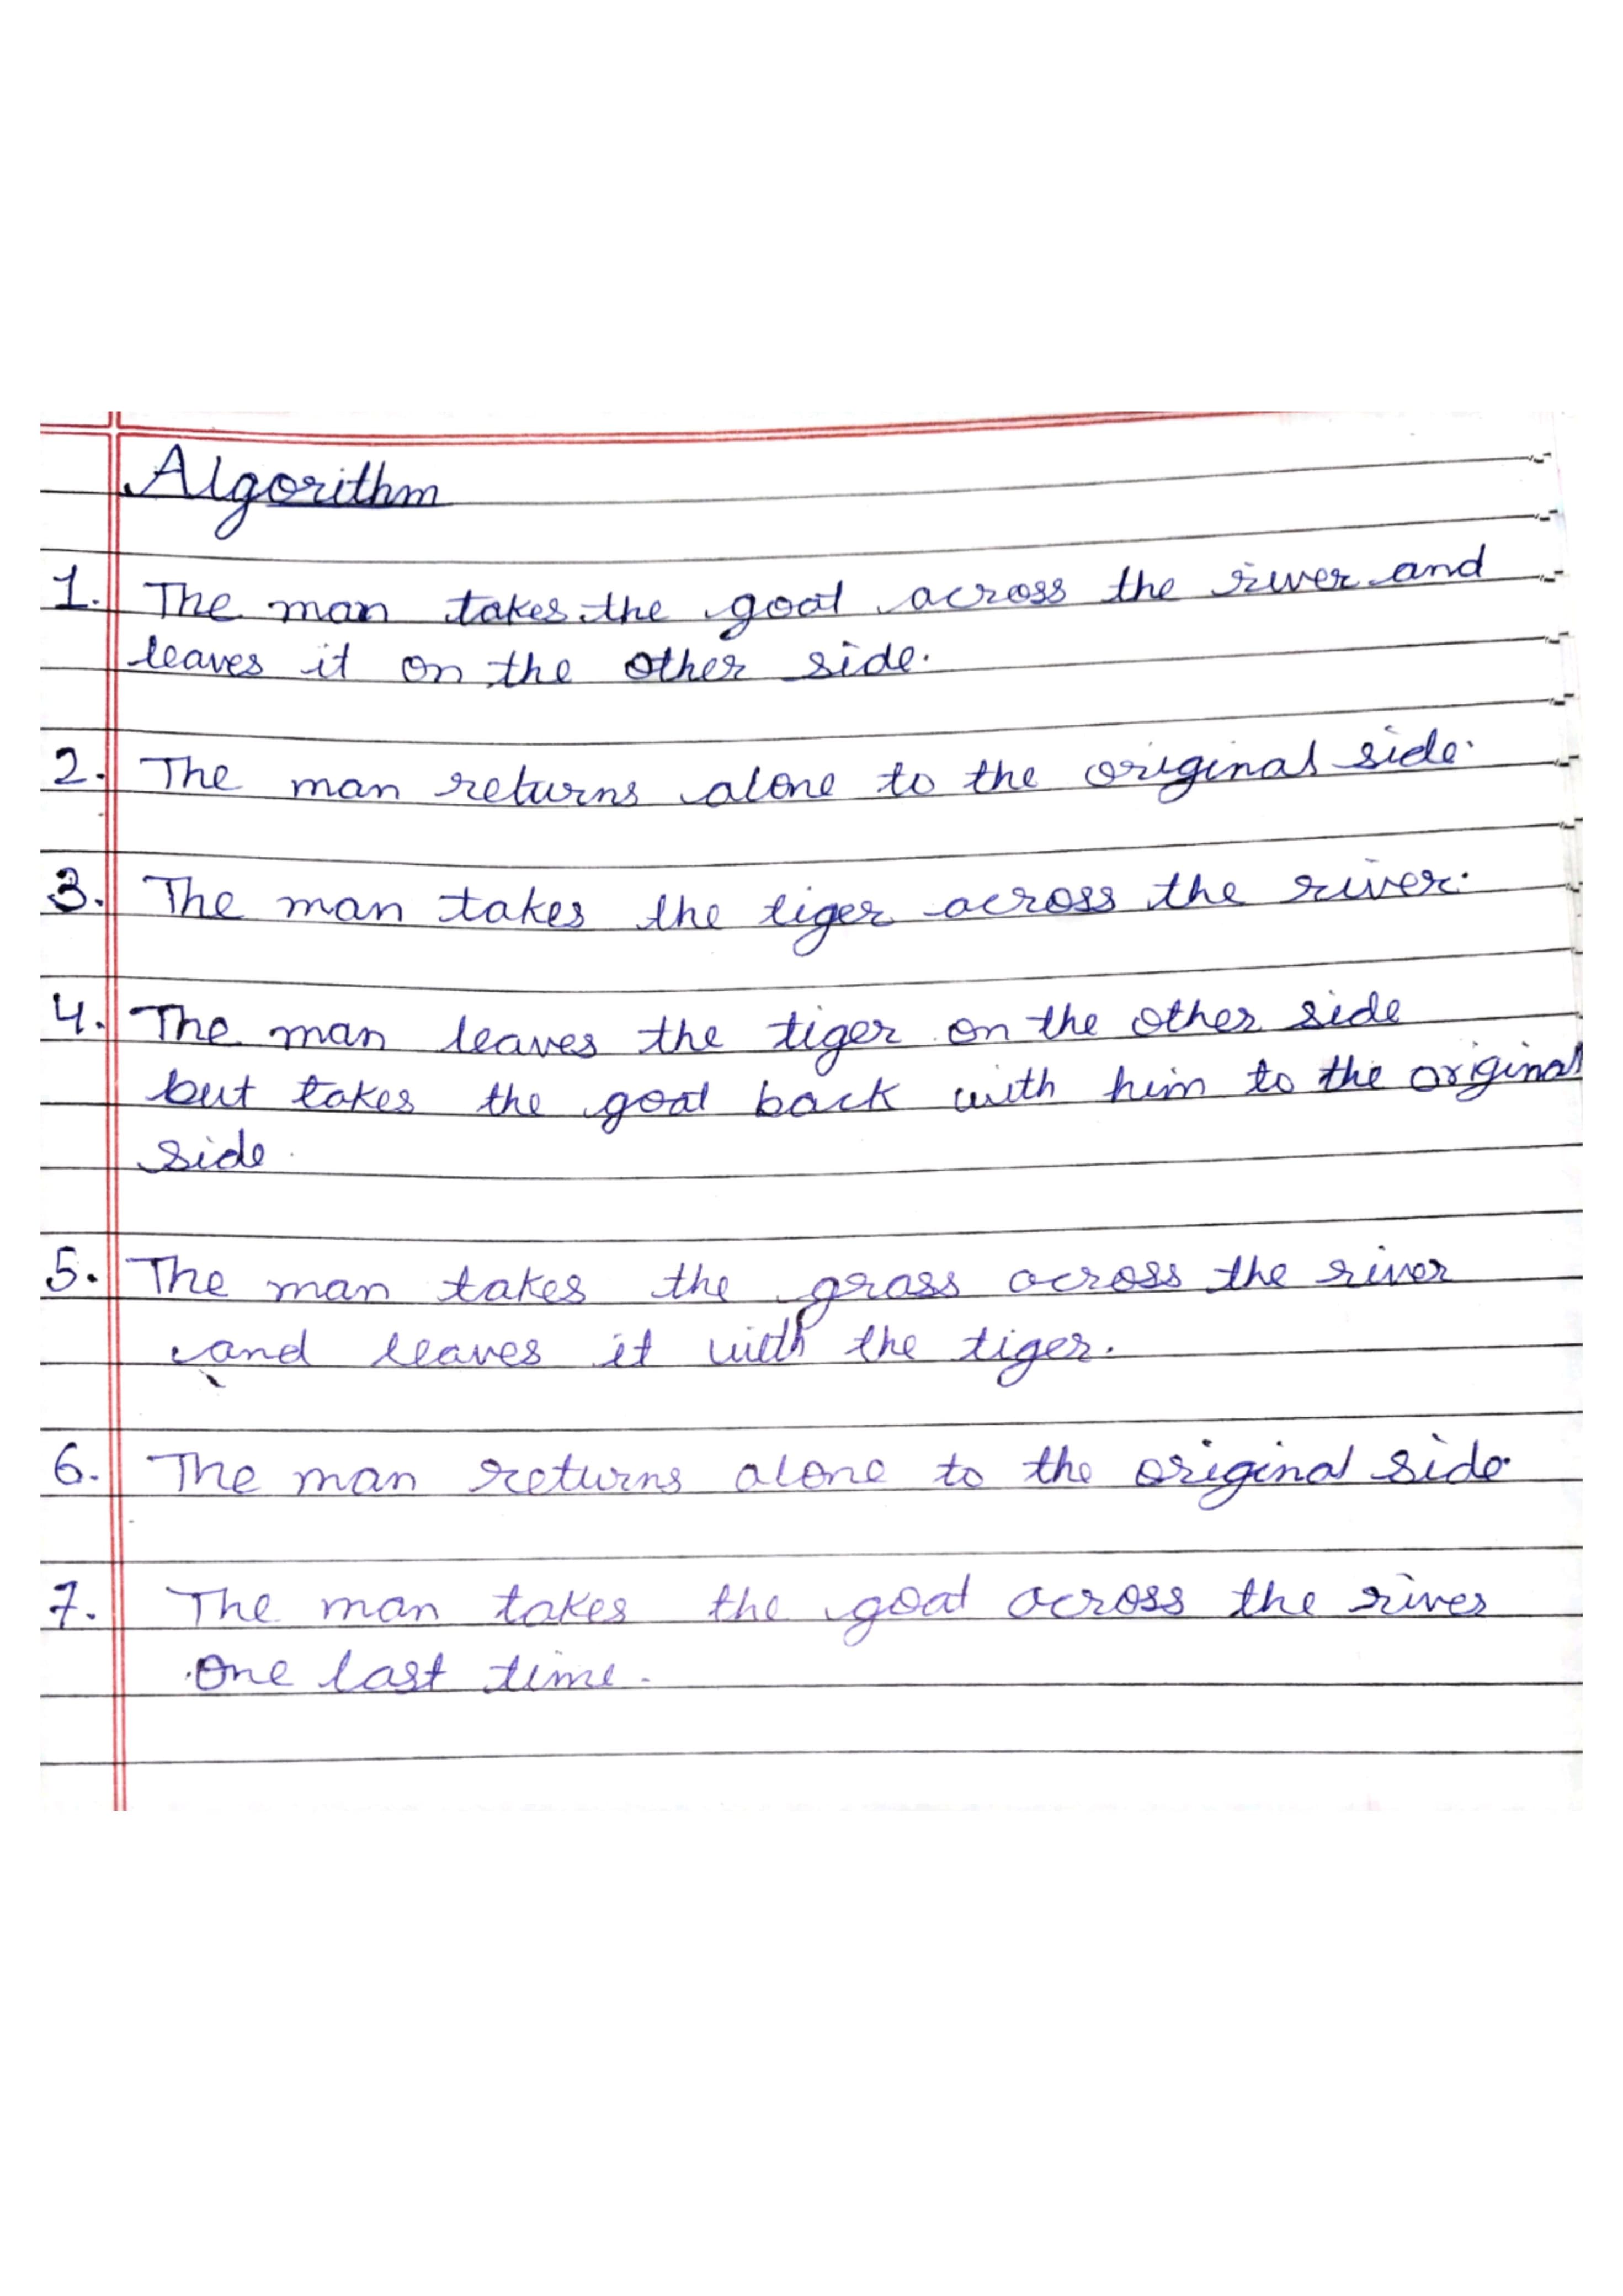 Algorithm
1. The man takes the goat across the river and
leaves it on the other side.
2. The man returns alone to the original side.
3. The man takes the tiger across the river.
4. The man leaves the tiger on the other side
but takes the goat back with him to the original
side.
5. The man takes the grass across the river
and leaves it with the tiger.
6. The man returns alone to the original side.
7. The man takes the goat across the river
one last time.